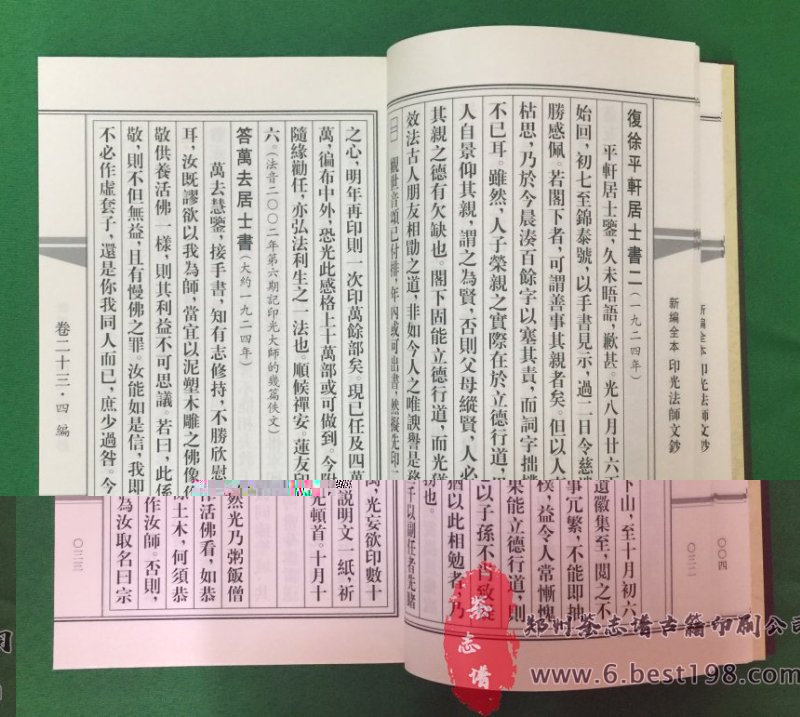 新編全本 印光法師文鈔
〇〇四
新編全本 印光法師文鈔
復徐平軒居士書二(一九二四年)
平軒居士鑒,久未晤語,歉甚。光八月廿六下山,至十月初六
始回,初七至錦泰號,以手書見示,過二日令慈遺徽集至,閱之不
勝感佩。若閣下者,可謂善事其親者矣。但以人事冗繁,不能即抽
枯思,乃於今晨湊百餘字以塞其責,而詞字拙樸,益令人常慚愧
不已耳。雖然,人子榮親之實際在於立德行道,果能立德行道,則
人自景仰其親,謂之為賢,否則父母縱賢,人必以子孫不肖致疑
其親之德有欠缺也。閣下固能立德行道,而光猶以此相勉者,乃
效法古人朋友相勖之道,非如今人之唯諛譽是務也。
觀世音頌已付排,年內或可出書,然擬先印
之心,明年再印則一次印萬餘部矣。現已任及四萬,光妄欲印數十
萬,徧布中外,恐光此感格上十萬部或可做到。今附說明文一紙,祈
隨緣勸任,亦弘法利生之一法也。順候禪安。蓮友印光頓首。十月十
六。(法音二〇〇二年第六期記印光大師的幾篇佚文)
答萬去居士書(大約一九二四年)
萬去慧鑒,接手書,知有志修持,不勝欣慰。然光乃粥飯僧
耳,汝既謬欲以我為師,當宜以泥塑木雕之佛像作活佛看,如恭
敬供養活佛一樣,則其利益不可思議。若曰,此係土木,何須恭
敬,則不但無益,且有慢佛之罪。汝能如是信,我即作汝師。否則,
不必作虛套子,還是你我同人而已,庶少過咎。今為汝取名曰宗
卷二十三·四編
〇三二三
郑州鉴志谱古籍印刷公司
www.6.best198.com